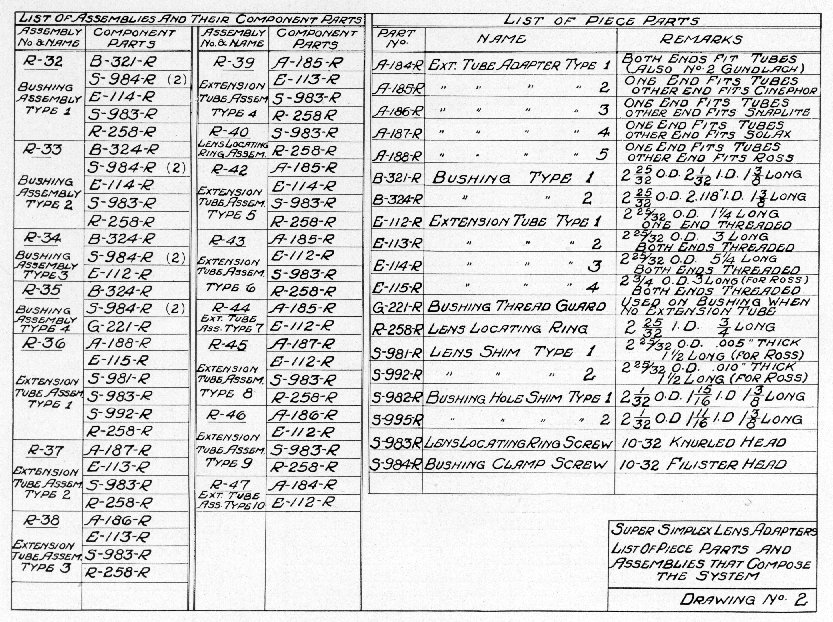 LIST OF ASSEMBLIES AND THEIR COMPONENT PARTS
ASSEMBLY No. & NAME COMPONENT PARTS
R-32 BUSHING ASSEMBLY TYPE 1
B-321-R
S-984-R (2)
E-114-R
S-983-R
R-258-R
R-33 BUSHING ASSEMBLY TYPE 2
B-324-R
S-984-R (2)
E-114-R
S-983-R
R-258-R
R-34 BUSHING ASSEMBLY TYPE 3
B-324-R
S-984-R (2)
E-112-R
R-35 BUSHING ASSEMBLY TYPE 4
B-324-R
S-984-R (2)
G-221-R
R-36 EXTENSION TUBE ASSEM. TYPE 1
A-188-R
E-115-R
S-981-R
S-983-R
S-992-R
R-258-R
R-37 EXTENSION TUBE ASSEM. TYPE 2
A-187-R
E-113-R
S-983-R
R-258-R
R-38 EXTENSION TUBE ASSEM. TYPE 3
A-186-R
E-113-R
S-983-R
R-258-R
ASSEMBLY No. & NAME COMPONENT PARTS
R-39 EXTENSION TUBE ASSEM TYPE 4
A-185-R
E-113-R
S-983-R
R-258 R
R-40 LENS LOCATING RING ASSEM.
S-983-R
R-258-R
R-42 EXTENSION TUBE ASSEM. TYPE 5
A-185-R
E-114-R
S-983-R
R-258-R
R-43 EXTENSION TUBE ASSEM. TYPE 6
A-185-R
E-112-R
S-983-R
R-258-R
R-44 EXT. TUBE ASS. TYPE 7
A-185-R
E-112-R
R-45 EXTENSION TUBE ASSEM. TYPE 8
A-187-R
E-112-R
S-983-R
R-258-R
R-46 EXTENSION TUBE ASSEM. TYPE 9
A-186-R
E-112-R
S-983-R
R-258-R
R-47 EXT. TUBE ASS. TYPE 10
A-184-R
E-112-R
LIST OF PIECE PARTS
PART No. NAME REMARKS
A-184-R EXT. TUBE ADAPTER TYPE 1 BOTH ENDS FIT TUBES (ALSO No. 2 GUNDLACH)
A-185R " " " " 2 ONE END FITS TUBES OTHER END FITS CINEPHOR
A-186-R " " " " 3 ONE END FITS TUBES OTHER END FITS SNAPLITE
A-187-R " " " " 4 ONE END FITS TUBES OTHER END FITS SOLAX
A-188-R " " " " 5 ONE END FITS TUBES OTHER END FITS ROSS
B-321-R BUSHING TYPE 1 2 25/32 O.D. 2 1/32 I.D. 1 3/8 LONG
B-324-R " " 2 2 25/32 O.D. 2.118" I.D. 1 3/8 LONG
E-112-R EXTENSION TUBE TYPE 1 2 25/32 O.D. 1 1/4 LONG ONE END THREADED
E-113-R " " " 2 2 25/32 O.D. 3 LONG BOTH ENDS THREADED
E-114-R " " " 3 2 25/32 O.D. 5 1/4 LONG BOTH ENDS THREADED
E-115-R " " " 4 2 3/4 O.D. 3 LONG (FOR ROSS) BOTH ENDS THREADED
G-221-R BUSHING THREAD GUARD USED ON BUSHING WHEN NO EXTENSION TUBE
R-258-R LENS LOCATING RING 2 25/32 I.D. 3/4 LONG
S-981-R LENS SHIM TYPE 1 2 25/32 O.D. .005" THICK 1 1/2 LONG (FOR ROSS)
S-992-R " " " 2 2 25/32 O.D. .010" THICK 1 1/2 LONG (FOR ROSS)
S-982-R BUSHING HOLE SHIM TYPE 1 2 1/32 O.D 1 15/16 I.D 1 3/8 LONG
S-995R " " " " 2 2 1/32 O.D 1 11/16 I.D 1 3/8 LONG
S-983R LENS LOCATING RING SCREW 10-32 KNURLED HEAD
S-984-R BUSHING CLAMP SCREW 10-32 FILISTER HEAD
SUPER SIMPLEX LENS ADAPTERS
LIST OF PIECE PARTS AND
ASSEMBLIES THAT COMPOSE
THE SYSTEM
DRAWING No. 2